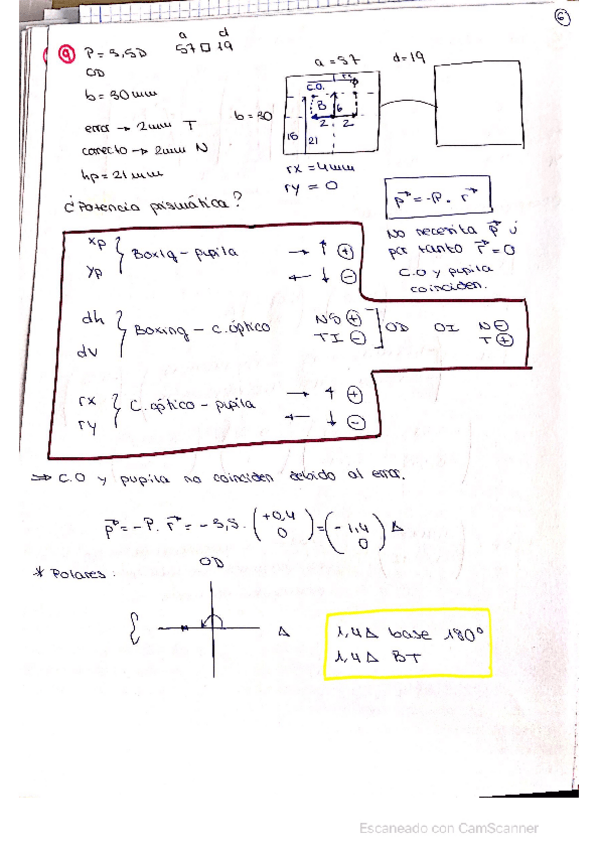 6
a d
9 P = 3,5D 57□19
OD
b = 30mm
error → 2mm T
correcto → 2mm N
hp = 21mm
¿Potencia prismática?
a = 57 d = 19
b = 30
C.O. rx
B 6
2 2
18 21
rx = 4mm
ry = 0
p⃗ = -P. r⃗
No necesita p⃗ y
por tanto r⃗ = 0
C.O y pupila
coinciden.
xp
yp } Boxing - pupila → ↑ ⊕
← ↓ ⊖
dh
dv } Boxing - C.óptico NS ⊕ TI ⊖ ] OD OI N⊖ T⊕
rx
ry } C.óptico - pupila → ↑ ⊕
← ↓ ⊖
⇒ C.O y pupila no coinciden debido al error.
p⃗ = -P. r⃗ = -3,5. (+0,4 0) = (-1,4 0) Δ
* Polares:
OD
Δ
1,4Δ base 180º
1,4Δ BT
Escaneado con CamScanner